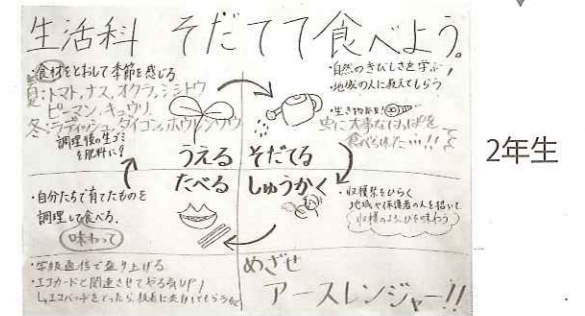 生活科 そだてて食べよう。
・食材をとおして季節を感じる
夏:トマト,ナス,オクラ,シシトウ
ピーマン,キュウリ
冬:ラディッシュ,ダイコン,ホウレンソウ
調理後の生ゴミ
を肥料に!
・自然のきびしさを学ぶ
・地域の人に教えてもらう
・生き物
に大事なはっぱを
食べられた…!!
うえる そだてる
たべる しゅうかく
・自分たちで育てたものを
調理して食べる。
味わって
・収穫祭をひらく
地域や保護者の人を招いて
収穫のよろこびを味わう
・学級通信で盛り上げる
・エコカードと関連させてやる気UP!
めざせ
アースレンジャー!!
2年生